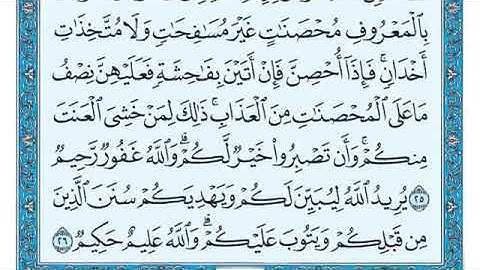 بِالْمَعْرُوفِ مُحْصَنَاتٍ غَيْرَ مُسَافِحَاتٍ وَلَا مُتَّخِذَاتِ
أَخْدَانٍ ۚ فَإِذَا أُحْصِنَّ فَإِنْ أَتَيْنَ بِفَاحِشَةٍ فَعَلَيْهِنَّ نِصْفُ
مَا عَلَى الْمُحْصَنَاتِ مِنَ الْعَذَابِ ۚ ذَٰلِكَ لِمَنْ خَشِيَ الْعَنَتَ
مِنكُمْ ۚ وَأَن تَصْبِرُوا خَيْرٌ لَّكُمْ ۗ وَاللَّهُ غَفُورٌ رَّحِيمٌ
٢٥ يُرِيدُ اللَّهُ لِيُبَيِّنَ لَكُمْ وَيَهْدِيَكُمْ سُنَنَ الَّذِينَ
مِن قَبْلِكُمْ وَيَتُوبَ عَلَيْكُمْ ۗ وَاللَّهُ عَلِيمٌ حَكِيمٌ ٢٦